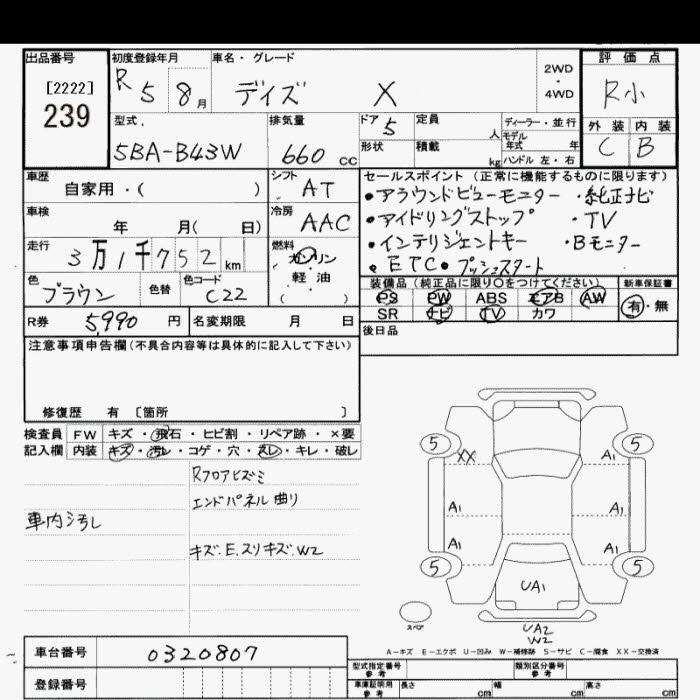 出品番号 初度登録年月 車名・グレード 評価点
[2222] R 5 8月 デイズ X 2WD・4WD R小
239
型式 排気量 ドア 5 定員 人 ディーラー・並行 外装 内装
5BA-B43W 660 cc 形状 積載 kg モデル年式 年 ハンドル 左・右 C B
車歴 自家用・( ) シフト AT セールスポイント (正常に機能するものに限ります)
・アラウンドビューモニター ・純正ナビ
車検 年 月( 日) 冷房 AAC ・アイドリングストップ ・TV
走行 3万1千752km 燃料 ガソリン 軽油 ( ) ・インテリジェントキー ・Bモニター
・ETC ・プッシュスタート
色 ブラウン 色替 色コード C22
装備品 (純正品に限り〇をつけてください) 新車保証書
PS PW ABS エアB AW 有・無
SR ナビ TV カワ
R券 5,990 円 名変期限 月 日 後日品
注意事項申告欄(不具合内容等は具体的に記入して下さい)
修復歴 有 〔箇所 〕
検査員 FW キズ・飛石・ヒビ割・リペア跡・×要
記入欄 内装 キズ・汚レ・コゲ・穴・スレ・キレ・破レ
Rフロアヒズミ
エンドパネル曲り
車内汚れ
キズ.E.スリキズ.W2
5 5
XX A1
A1 A1
A1 A1
5 5
UA1
スペア
UA2
W2
A-キズ E-エクボ U-凹み W-補修跡 S-サビ C-腐食 XX-交換済
車台番号 0320807
型式指定番号 参考 類別区分番号 参考
登録番号 車庫証明用 参考 長さ cm 幅 cm 高さ cm